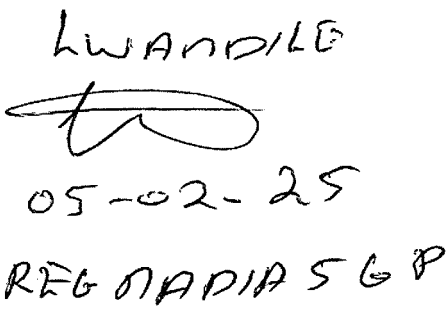 LWANDILE
05-02-25
REG MADIA 5 G P